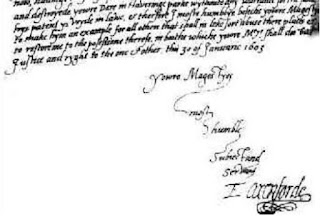 and destroyed youre Dare in Haveringe parke wythowte any warrant for the
hys patent ys voyde in lawe, & therfore I moste humblie beseche youre Magesty
to make hym an example for all others that shall in lyke sort abuse there places &
to restore me to the possessione therof, in bathe whiche youre M^ty shall do but
Justice and right to the one & other. this 30 of Januarie 1603
Youre Magestyes
most
humble
Subiect and
Servant
E. Oxenforde